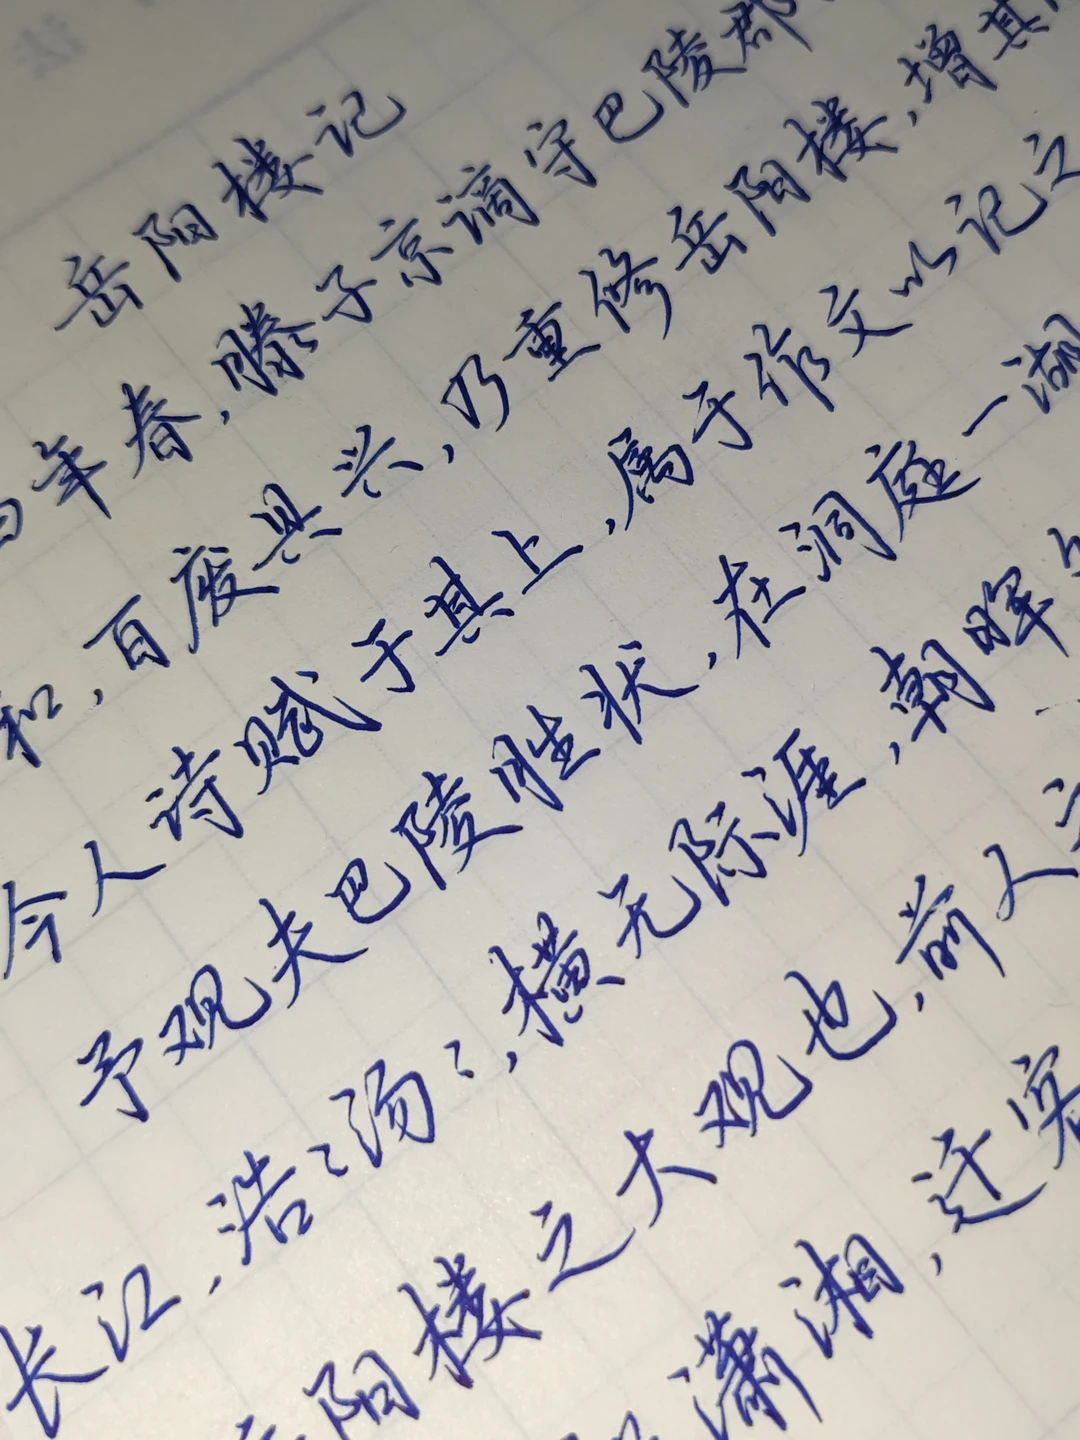 岳阳楼记
年春,滕子京谪守巴陵郡
和,百废具兴,乃重修岳阳楼,增其
今人诗赋于其上,属于作文以记之
予观夫巴陵胜状,在洞庭一湖
长江,浩々汤々,横无际涯,朝晖
岳阳楼之大观也,前人之
潇湘,迁客